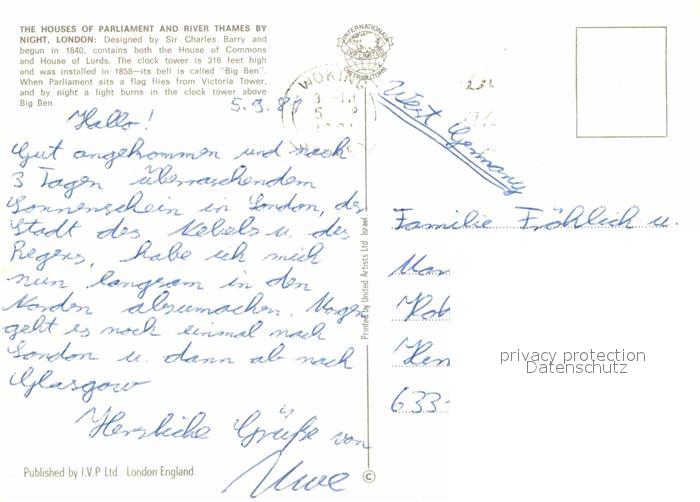 THE HOUSES OF PARLIAMENT AND RIVER THAMES BY
NIGHT, LONDON: Designed by Sir Charles Barry and
begun in 1840, contains both the House of Commons
and House of Lords. The clock tower is 316 feet high
and was installed in 1858—its bell is called "Big Ben".
When Parliament sits a flag flies from Victoria Tower,
and by night a light burns in the clock tower above
Big Ben.
5.9.81
Hallo!
Gut angekommen und nach
3 Tagen überraschendem
Sonnenschein in London, der
Stadt des Nebels u. des
Regens, habe ich mich
nun langsam in den
Norden abzumachen. Morgen
geht es noch einmal nach
London u. dann ab nach
Glasgow
Herzliche Grüße von
Uwe
Published by I.V.P Ltd. London England.
Printed by United Artists Ltd. Israel
©
INTERNATIONAL
I.V.P LIMITED
DISTRIBUTORS
WOKING
West Germany
Familie Fröhlich u.
Man
Hen
633-
privacy protection
Datenschutz